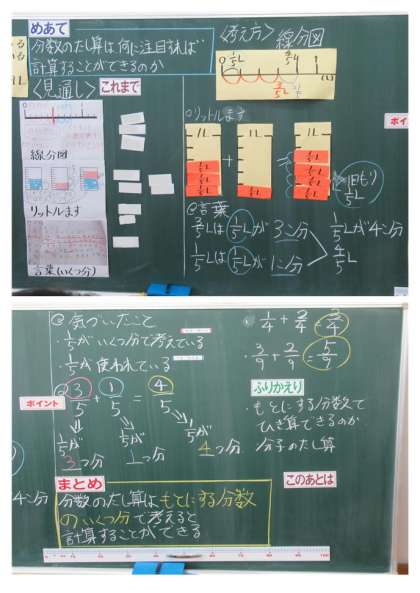 めあて
分数のたし算は何に注目すれば
計算することができるのか
〈見通し〉これまで
線分図
リットルます
言葉(いくつ分)
〈考え方〉線分図
リットルます
1L
1L
1L
+
=
1目もり
1/5L
@言葉
3/5Lは1/5Lが3こ分
1/5Lは1/5Lが1こ分
1/5Lが4こ分
4/5L
@気づいたこと
・1/5がいくつ分で考えている
・1/5が使われている
ポイント
3/5+1/5=4/5
1/5が3つ分
1/5が1つ分
1/5が4つ分
まとめ
分数のたし算はもとにする分数
のいくつ分で考えると
計算することができる
1/4+2/4=3/4
・3/9+2/9=5/9
ふりかえり
・もとにする分数えて
ひき算できるのか
分子のたし算
このあとは